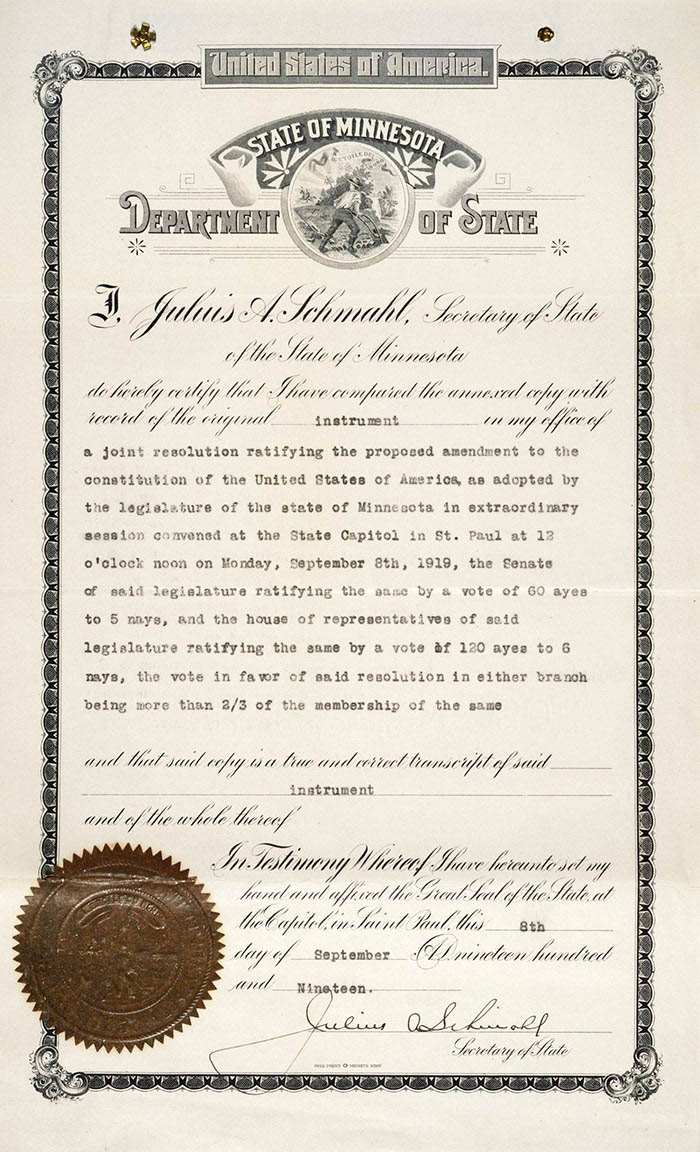 United States of America.
STATE OF MINNESOTA
L'ETOILE DU NORD
DEPARTMENT OF STATE
I, Julius A. Schmahl, Secretary of State
of the State of Minnesota
do hereby certify that I have compared the annexed copy with
record of the original instrument in my office of
a joint resolution ratifying the proposed amendment to the
constitution of the United States of America, as adopted by
the legislature of the state of Minnesota in extraordinary
session convened at the State Capitol in St. Paul at 12
o'clock noon on Monday, September 8th, 1919, the Senate
of said legislature ratifying the same by a vote of 60 ayes
to 5 nays, and the house of representatives of said
legislature ratifying the same by a vote of 120 ayes to 6
nays, the vote in favor of said resolution in either branch
being more than 2/3 of the membership of the same
and that said copy is a true and correct transcript of said
instrument
and of the whole thereof
In Testimony Whereof, I have hereunto set my
hand and affixed the Great Seal of the State, at
the Capitol, in Saint Paul, this 8th
day of September A.D. nineteen hundred
and Nineteen.
Julius A Schmahl
Secretary of State